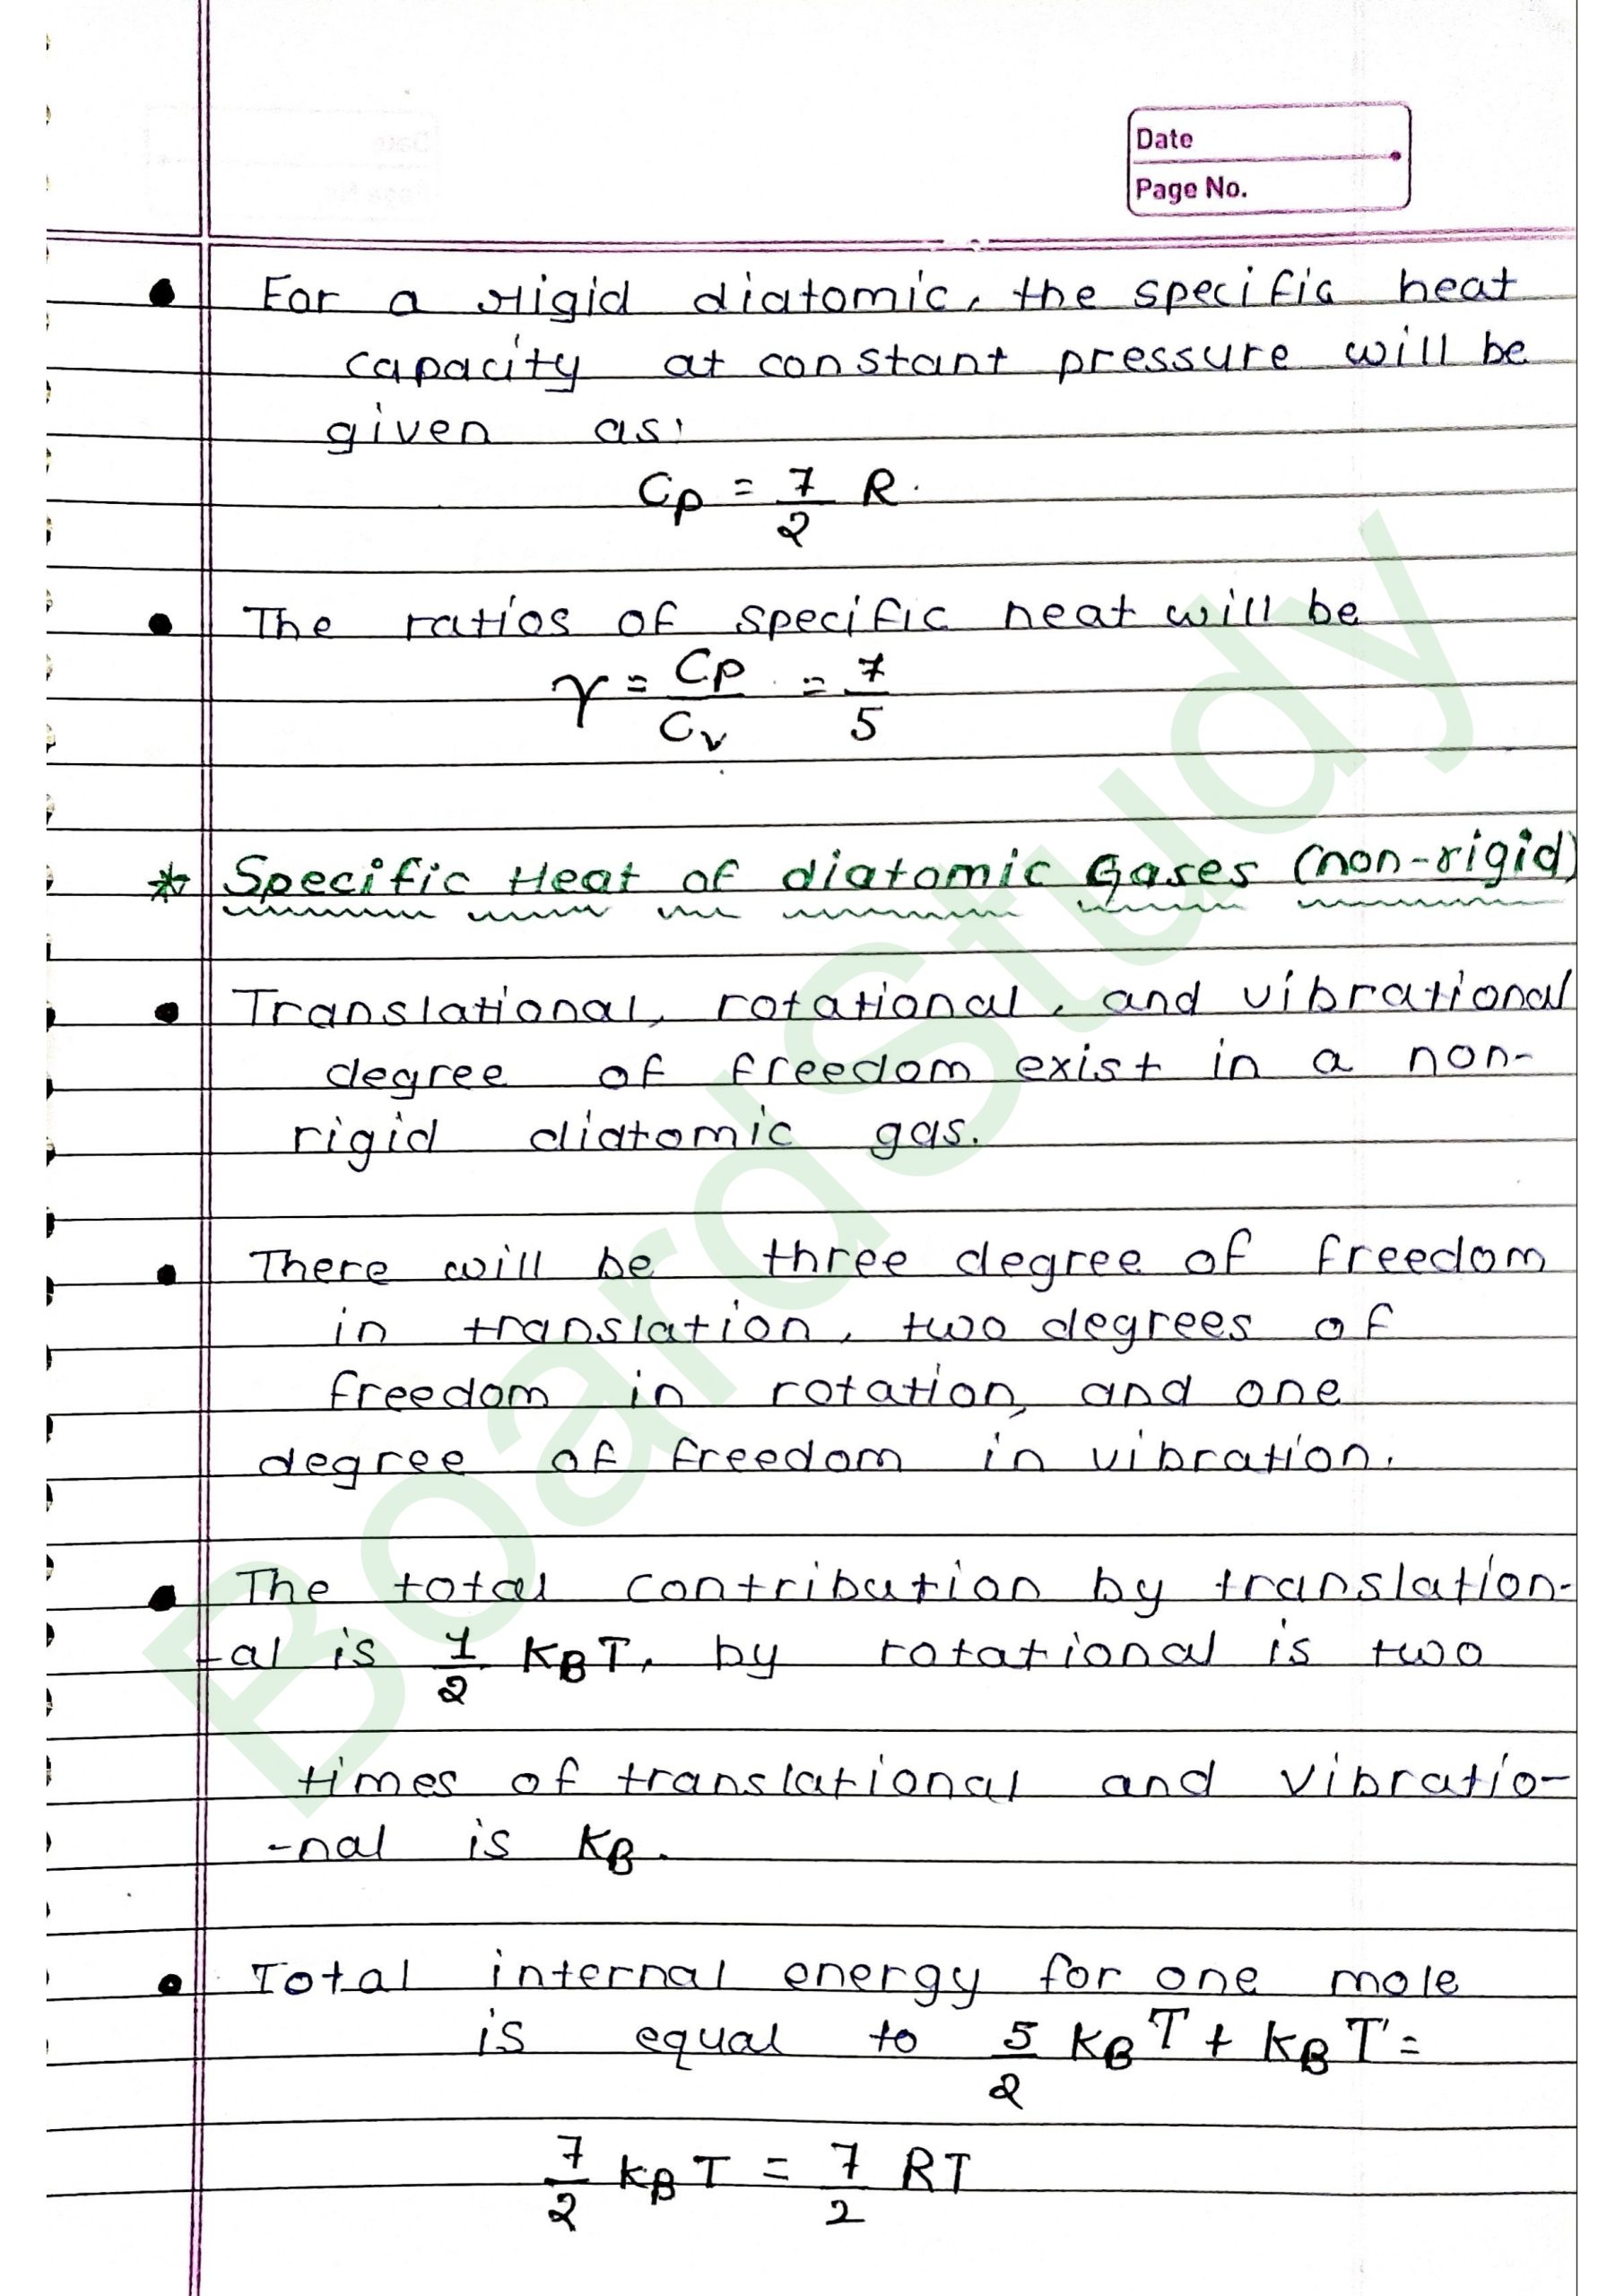 Date
Page No.
• For a rigid diatomic, the specific heat
capacity at constant pressure will be
given as,
Cp = 7/2 R.
• The ratios of specific heat will be
γ = Cp/Cv = 7/5
* Specific Heat of diatomic Gases (non-rigid)
• Translational, rotational, and vibrational
degree of freedom exist in a non-
rigid diatomic gas.
• There will be three degree of freedom
in translation, two degrees of
freedom in rotation, and one
degree of freedom in vibration.
• The total contribution by translation-
-al is 1/2 KBT, by rotational is two
times of translational and vibratio-
-nal is KB.
• Total internal energy for one mole
is equal to 5/2 KBT + KBT =
7/2 KBT = 7/2 RT
BoardStudy